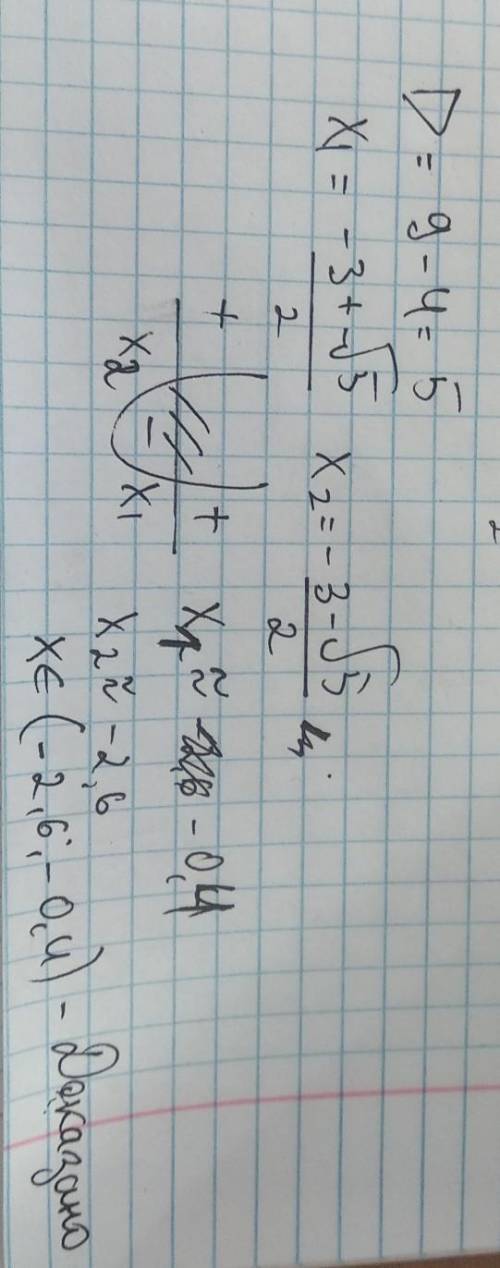 D = 9 - 4 = 5
x1 = -3 + √5 / 2 x2 = -3 - √5 / 2
+ - +
x2 x1
x1 ≈ -0,4
x2 ≈ -2,6
x ∈ (-2,6; -0,4) - Доказано